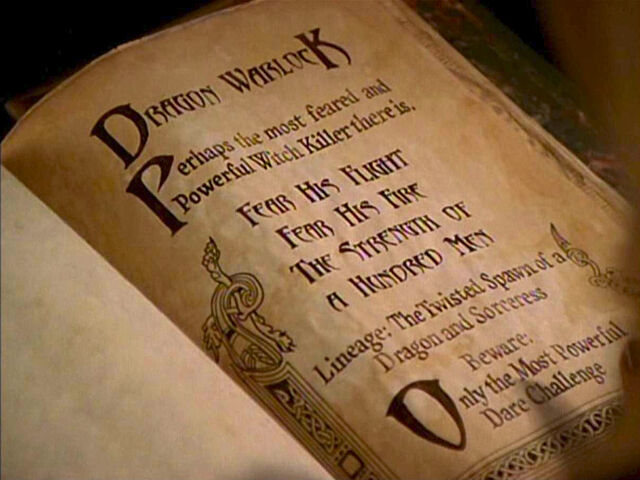 Dragon Warlock
Perhaps the most feared and
Powerful Witch Killer there is.
Fear His Flight
Fear His Fire
The Strength of
a Hundred Men
Lineage: The Twisted Spawn of a
Dragon and Sorceress
Beware:
Only the Most Powerful
Dare Challenge